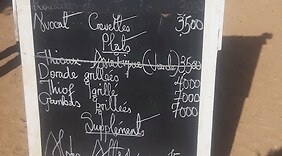 Avocat Crevettes 3500
Plats
Asiatique (Viande) 3500
Dorade grillées 4000
Thiof grillé 7000
Gambas grillées 7000
Suppléments